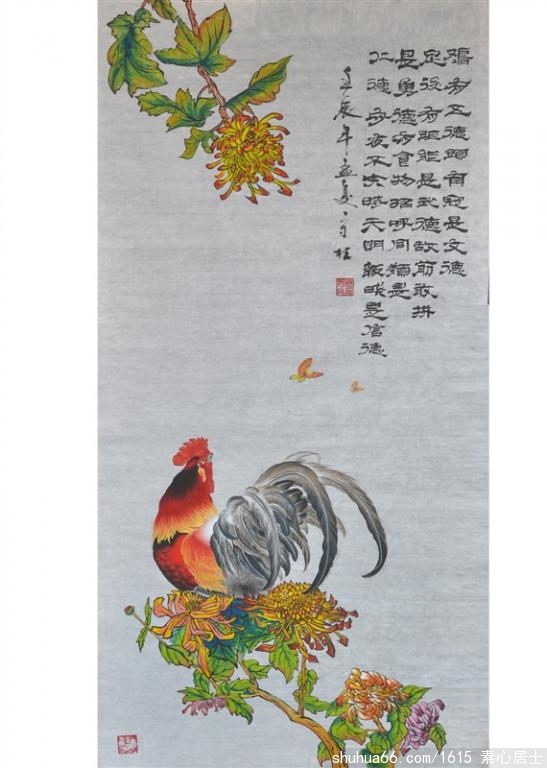 鷄有五德頭有冠是文德
足後有距能是武德敌前敢拼
是勇德有食物招呼同類是
仁德守夜不失時天明報曉是信德
壬辰年孟夏守桂
shuhua66.com/1615 素心居士